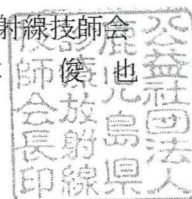 射線技師会
俊 也
公益社団法人
鹿児島県
診療放射線
技師会長印